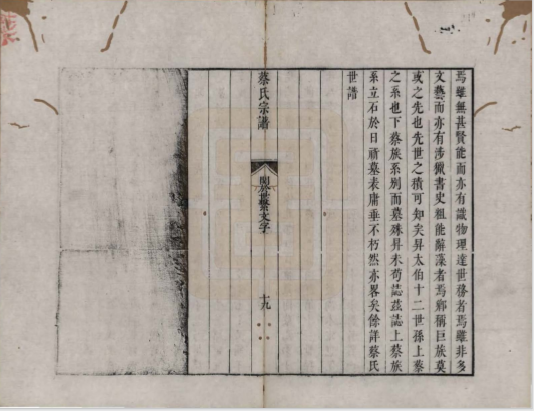 焉雖無甚賢能而亦有識物理達世務者焉雖非多
文藝而亦有涉獵書史粗能辭藻者焉鄉稱巨族莫
或之先也先世之積可知矣昇太伯十二世孫上蔡
之系也下蔡族系別而墓殊昇未苟誌茲誌上蔡族
系立石於日祈墓表庸垂不朽然亦畧矣餘詳蔡氏
世譜
蔡氏宗譜
關於世系文字
十九